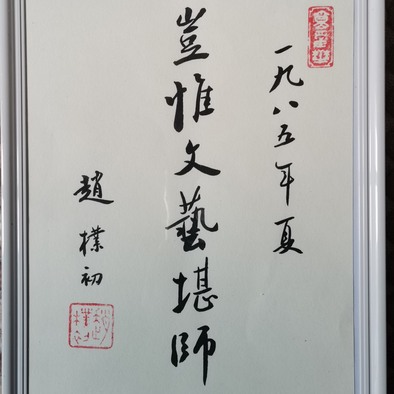 一九八五年夏
豈惟文藝堪師
趙樸初